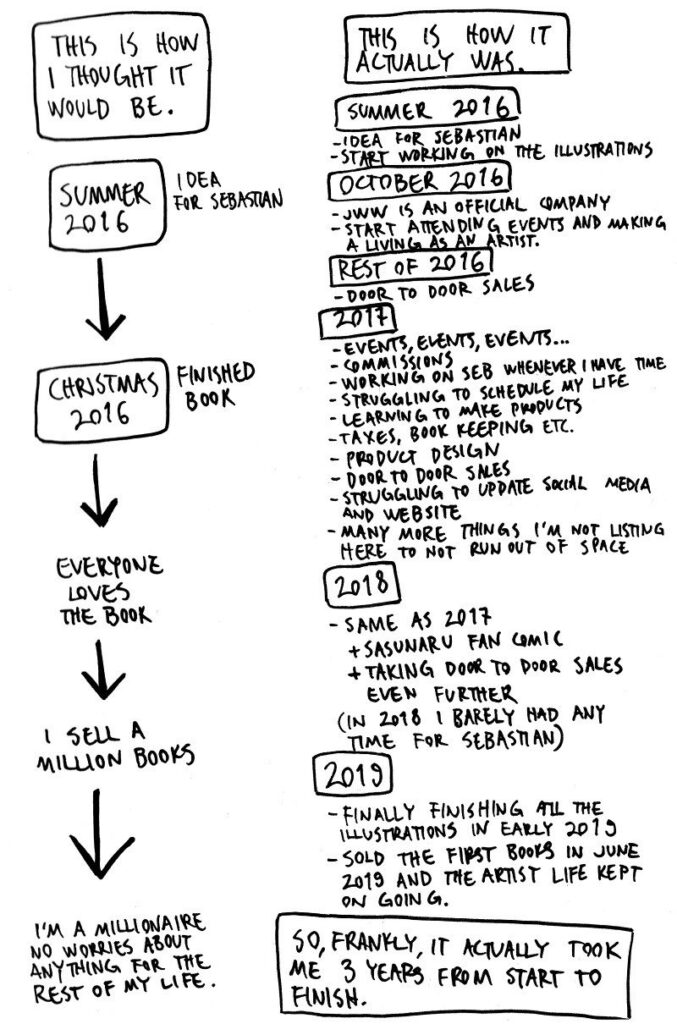 THIS IS HOW
I THOUGHT IT
WOULD BE.
SUMMER
2016
IDEA
FOR SEBASTIAN
CHRISTMAS
2016
FINISHED
BOOK
EVERYONE
LOVES
THE BOOK
I SELL A
MILLION BOOKS
I'M A MILLIONAIRE
NO WORRIES ABOUT
ANYTHING FOR THE
REST OF MY LIFE.
THIS IS HOW IT
ACTUALLY WAS.
SUMMER 2016
-IDEA FOR SEBASTIAN
-START WORKING ON THE ILLUSTRATIONS
OCTOBER 2016
-JWW IS AN OFFICIAL COMPANY
-START ATTENDING EVENTS AND MAKING
A LIVING AS AN ARTIST.
REST OF 2016
-DOOR TO DOOR SALES
2017
-EVENTS, EVENTS, EVENTS...
-COMMISSIONS
-WORKING ON SEB WHENEVER I HAVE TIME
-STRUGGLING TO SCHEDULE MY LIFE
-LEARNING TO MAKE PRODUCTS
-TAXES, BOOK KEEPING ETC.
-PRODUCT DESIGN
-DOOR TO DOOR SALES
-STRUGGLING TO UPDATE SOCIAL MEDIA
AND WEBSITE
-MANY MORE THINGS I'M NOT LISTING
HERE TO NOT RUN OUT OF SPACE
2018
-SAME AS 2017
+SASUNARU FAN COMIC
+TAKING DOOR TO DOOR SALES
EVEN FURTHER
(IN 2018 I BARELY HAD ANY
TIME FOR SEBASTIAN)
2019
-FINALLY FINISHING ALL THE
ILLUSTRATIONS IN EARLY 2019
-SOLD THE FIRST BOOKS IN JUNE
2019 AND THE ARTIST LIFE KEPT
ON GOING.
SO, FRANKLY, IT ACTUALLY TOOK
ME 3 YEARS FROM START TO
FINISH.